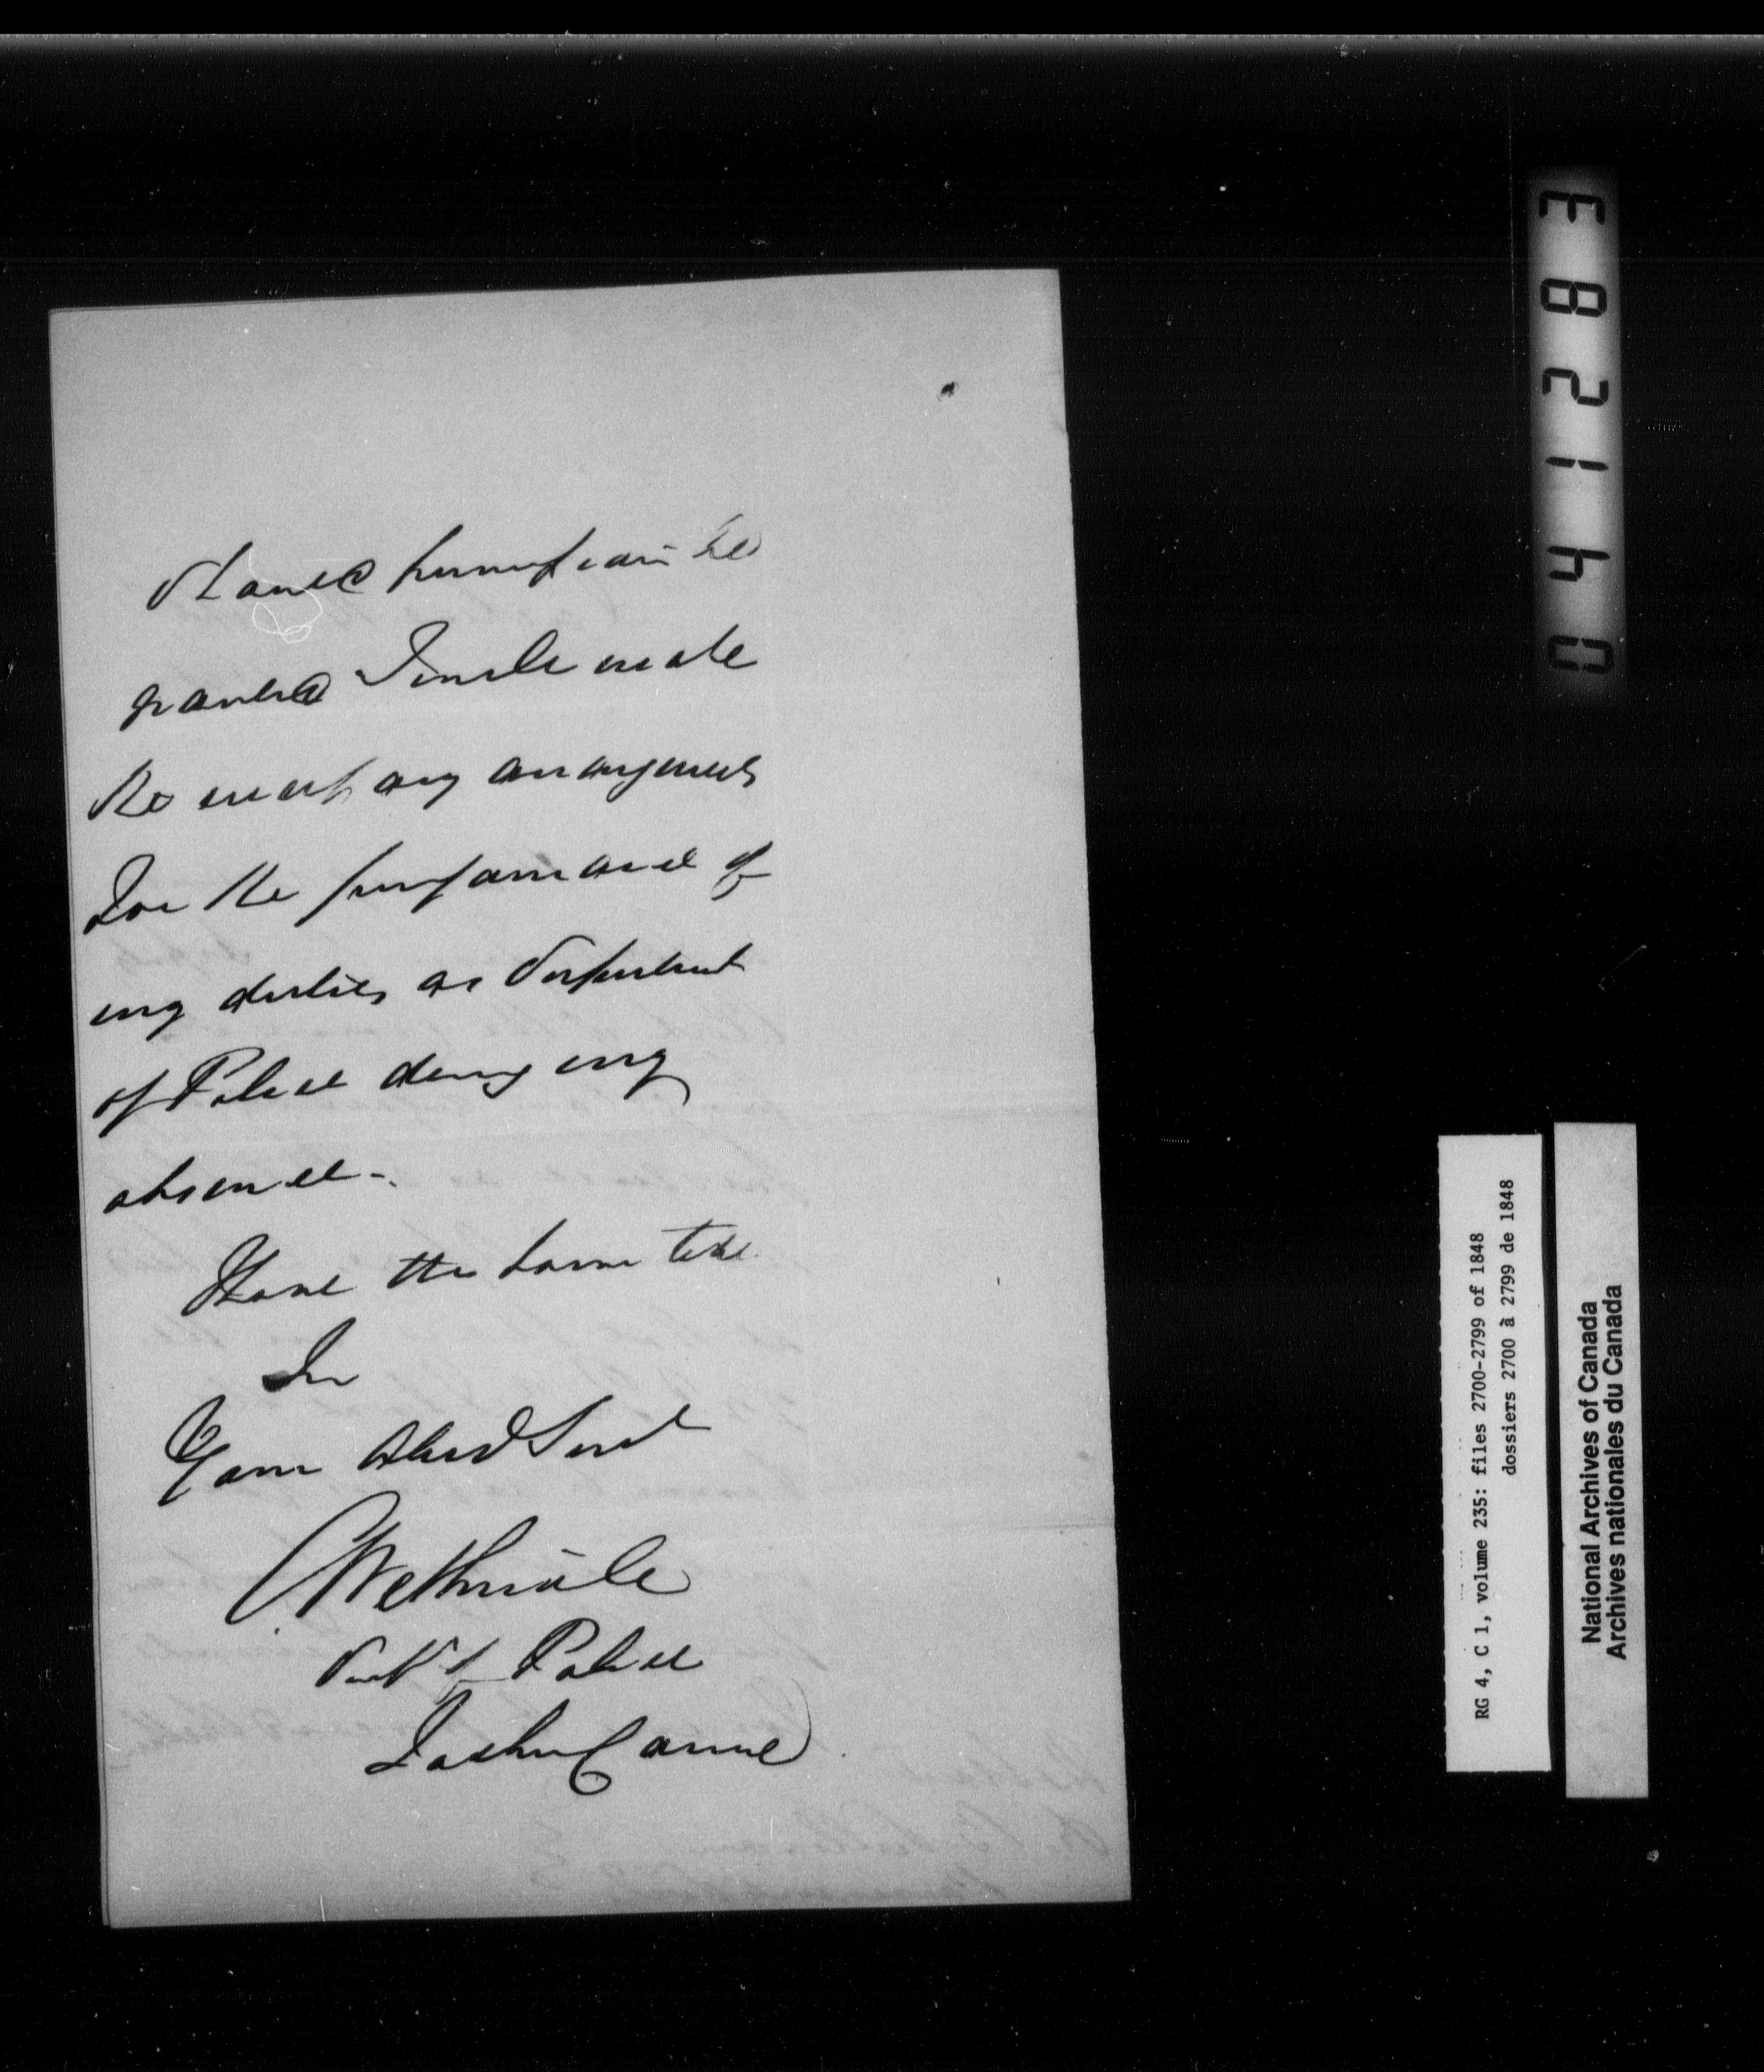 Should permission be
granted I will make
the necessary arrangements
for the performance of
my duties as Superintendent
of Police during my
absence.
Have the honor to be
Sir
Your Obed Servt
C Wetherall
Supt of Police
382140
RG 4, C 1, volume 235: files 2700-2799 of 1848
dossiers 2700 à 2799 de 1848
National Archives of Canada
Archives nationales du Canada